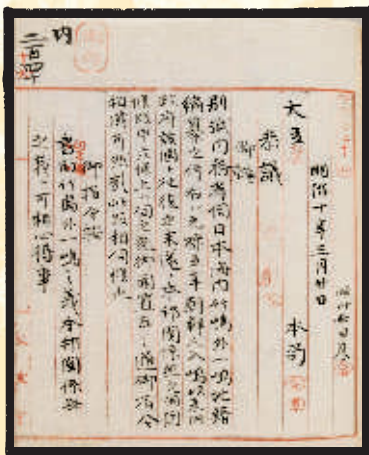 明治十年三月廿日
大臣
本局
参議
卿輔
別紙内務省伺日本海内竹嶋外一嶋地籍
編纂之件右ハ元禄五年朝鮮人入嶋以来旧
政府該国ト往復之末遂ニ本邦関係無之相聞
候段申立候上ハ伺之趣御聞置左之通御指令
相成可然哉此段相伺候也
御指令按
書面竹島外一嶋之義本邦関係無
之義ト可相心得事
内